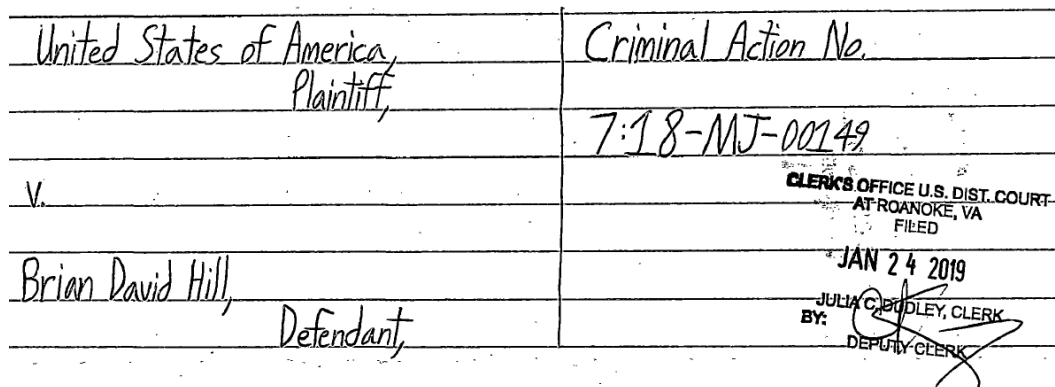 United States of America,
Plaintiff,
v.
Brian David Hill,
Defendant,
Criminal Action No.
7:18-MJ-00149
CLERK'S OFFICE U.S. DIST. COURT
AT ROANOKE, VA
FILED
JAN 24 2019
JULIA C. DUDLEY, CLERK
BY:
DEPUTY CLERK